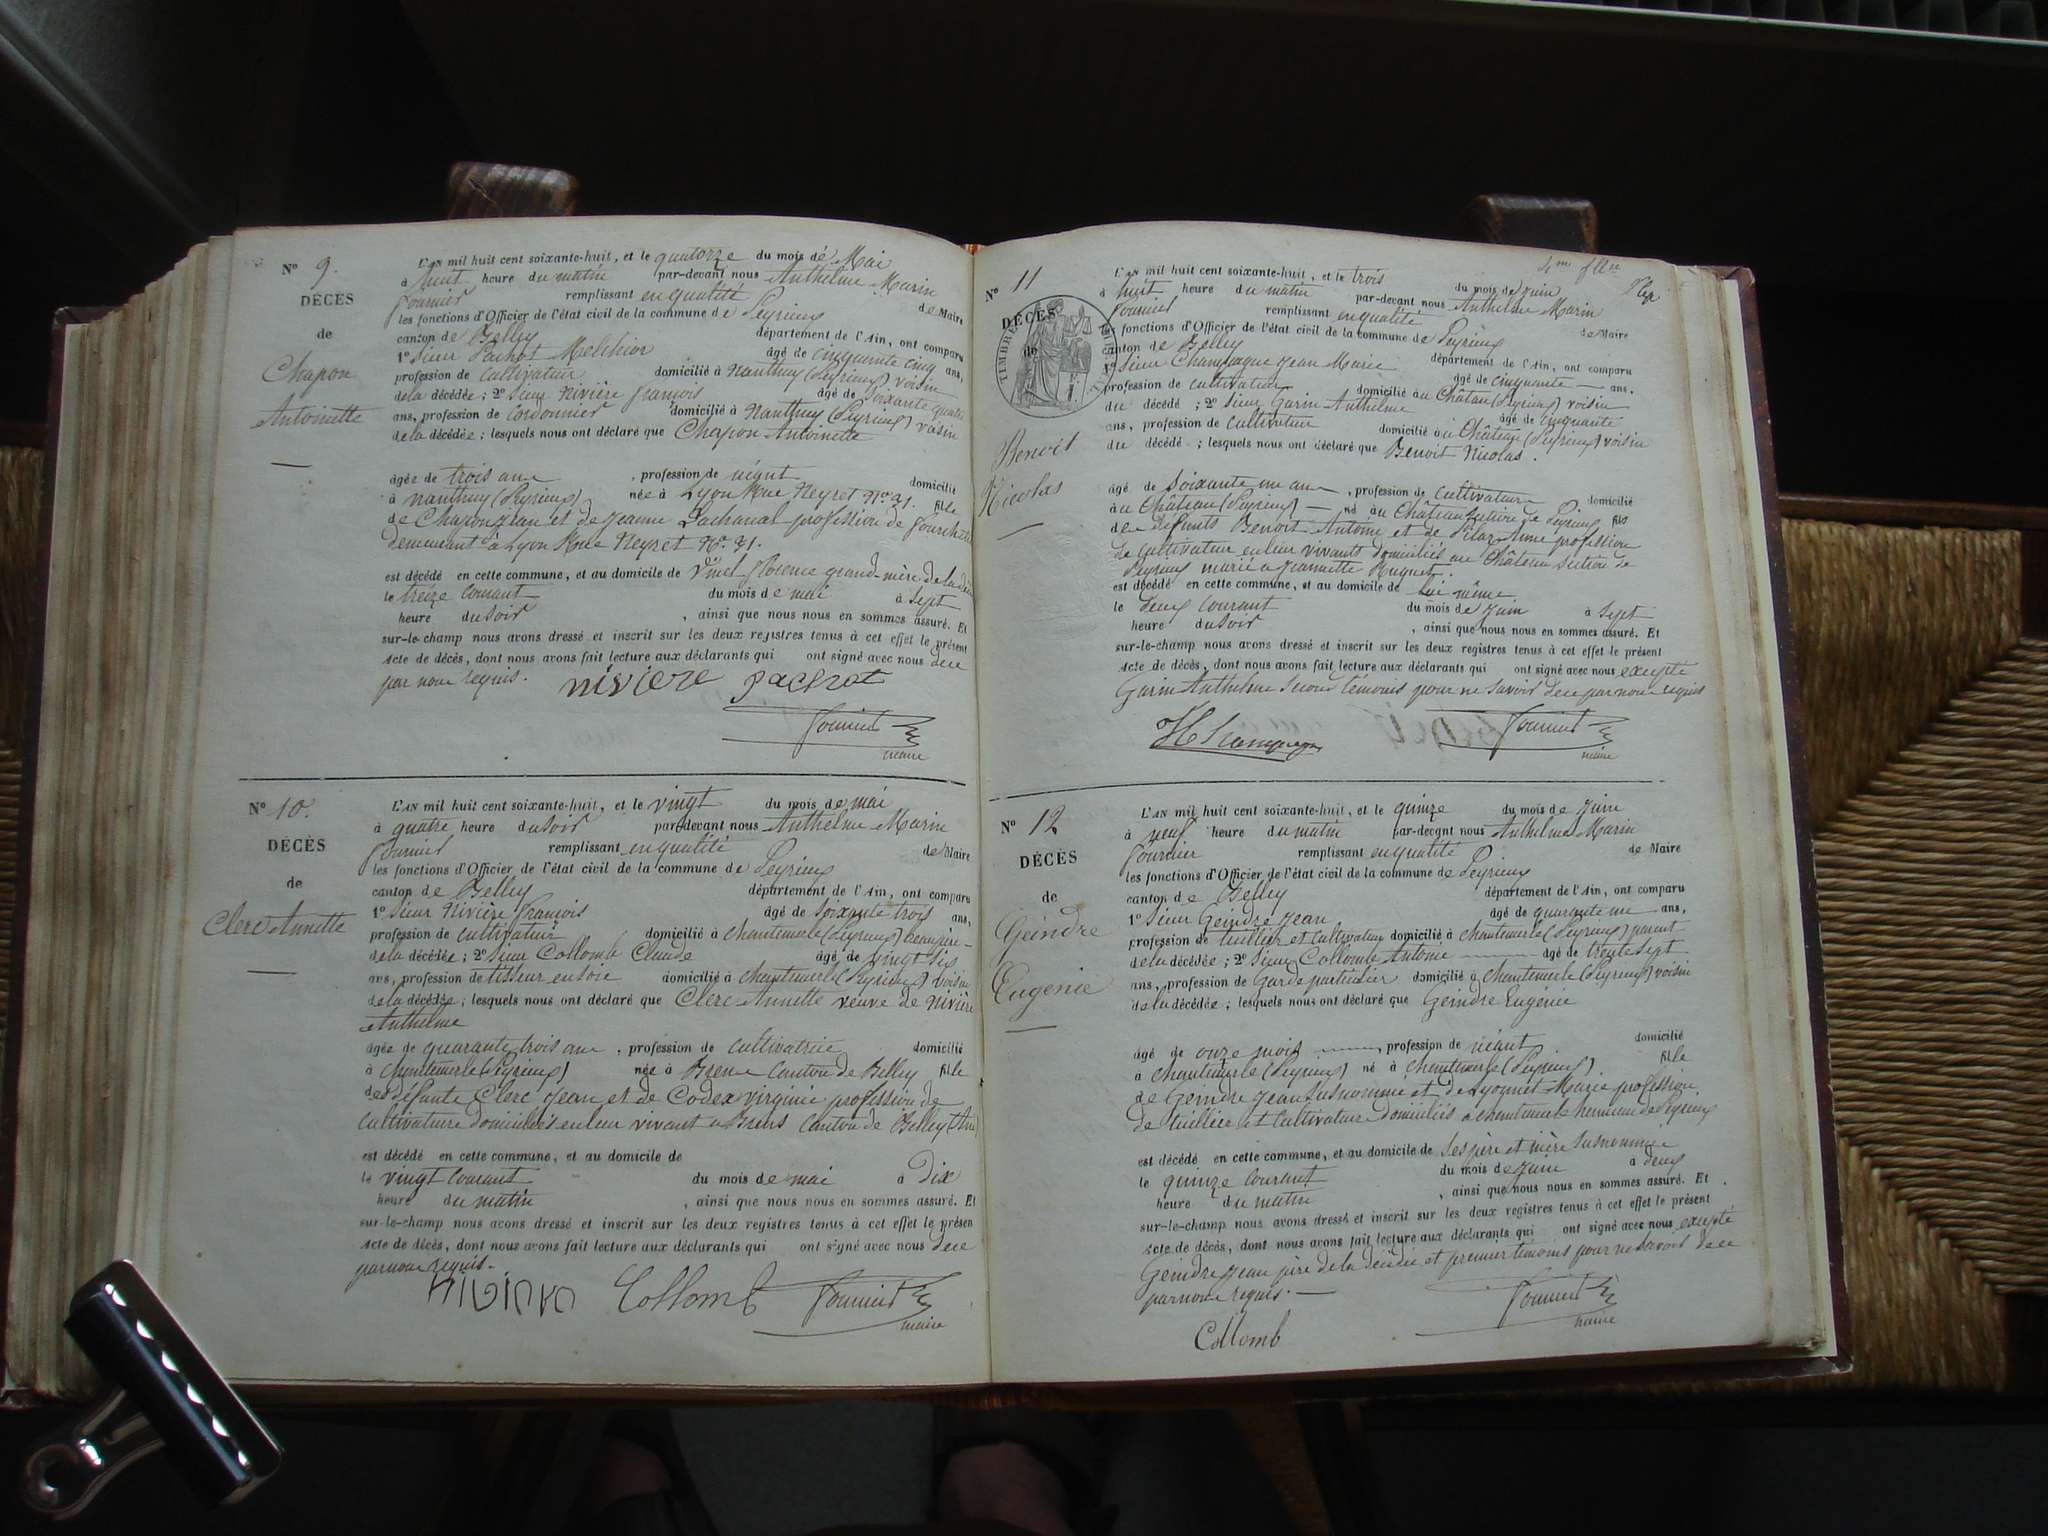 N° 9.
DÉCÈS
de
Chapon
Antoinette
L'AN mil huit cent soixante-huit, et le quatorze du mois de Mai
à huit heure du matin par-devant nous Anthelme Marin
Fournier remplissant en qualité de Maire
les fonctions d'Officier de l'état civil de la commune de Peyrieux
canton de Belley département de l'Ain, ont comparu
1° Sieur Pachot Melchior âgé de cinquante cinq ans,
profession de cultivateur domicilié à Nanthuy (Peyrieux) voisin
de la décédée ; 2° Sieur Nivière françois âgé de soixante quatre
ans, profession de Cordonnier domicilié à Nanthuy (Peyrieux) voisin
de la décédée ; lesquels nous ont déclaré que Chapon Antoinette
âgée de trois ans , profession de néant domicilié
à Nanthuy (Peyrieux) née à Lyon Rue Neyret N° 31. fille
de Chapon Jean et de Jeanne Lachanal profession de
demeurant à Lyon Rue Neyret N° 31.
est décédé en cette commune, et au domicile de Vinet florence grand-mère de la
le treize courant du mois de mai à Sept
heure du soir , ainsi que nous nous en sommes assuré. Et
sur-le-champ nous avons dressé et inscrit sur les deux registres tenus à cet effet le présent
acte de décès, dont nous avons fait lecture aux déclarants qui ont signé avec nous de ce
par nous requis. nivière pachot
Fournier
maire
N° 10.
DÉCÈS
de
Clerc Annette
L'AN mil huit cent soixante-huit, et le vingt du mois de mai
à quatre heure du soir par-devant nous Anthelme Marin
Fournier remplissant en qualité de Maire
les fonctions d'Officier de l'état civil de la commune de Peyrieux
canton de Belley département de l'Ain, ont comparu
1° Sieur Nivière françois âgé de soixante trois ans,
profession de cultivateur domicilié à Chantemerle (Peyrieux) beaupère
de la décédée ; 2° Sieur Collomb Claude âgé de vingt six
ans, profession de tisseur en soie domicilié à Chantemerle (Peyrieux) voisin
de la décédée ; lesquels nous ont déclaré que Clerc Annette veuve de Nivière
Anthelme
âgée de quarante trois ans , profession de Cultivatrice domicilié
à Chantemerle (Peyrieux) née à Brens Canton de Belley fille
des défunts Clerc Jean et de Codex virginie profession de
Cultivateurs domiciliés en leur vivant à Brens Canton de Belley (Ain)
est décédé en cette commune, et au domicile de
le vingt courant du mois de mai à Dix
heure du matin , ainsi que nous nous en sommes assuré. Et
sur-le-champ nous avons dressé et inscrit sur les deux registres tenus à cet effet le présen
acte de décès, dont nous avons fait lecture aux déclarants qui ont signé avec nous de ce
par nous requis.
Collomb Fournier
maire
N° 11
DÉCÈS
de
TIMBRE
Benoit
Nicolas
L'AN mil huit cent soixante-huit, et le trois du mois de Juin
à huit heure du matin par-devant nous Anthelme Marin
Fournier remplissant en qualité de Maire
les fonctions d'Officier de l'état civil de la commune de Peyrieux
canton de Belley département de l'Ain, ont comparu
1° Sieur Champagne Jean Marie âgé de cinquante ans.
profession de cultivateur domicilié au Château (Peyrieux) voisin
du décédé ; 2° Sieur Garin Anthelme âgé de cinquante
ans, profession de cultivateur domicilié au Château (Peyrieux) voisin
du décédé ; lesquels nous ont déclaré que Benoit Nicolas.
âgé de soixante un ans , profession de cultivateur domicilié
au Château (Peyrieux) né au Château section de Peyrieux fils
de défunts Benoit Antoine et de Pilaz Anne profession
de Cultivateur en leur vivants domiciliés au Château section de
Peyrieux marié à Jeannette Huguet.
est décédé en cette commune, et au domicile de lui même
le deux courant du mois de Juin à Sept
heure du soir , ainsi que nous nous en sommes assuré. Et
sur-le-champ nous avons dressé et inscrit sur les deux registres tenus à cet effet le présent
acte de décès, dont nous avons fait lecture aux déclarants qui ont signé avec nous excepté
Garin Anthelme Second témoins pour ne savoir de ce par nous requis
Fournier
maire
N° 12
DÉCÈS
de
Geindre
Eugénie
L'AN mil huit cent soixante-huit, et le quinze du mois de Juin
à neuf heure du matin par-devant nous Anthelme Marin
Fournier remplissant en qualité de Maire
les fonctions d'Officier de l'état civil de la commune de Peyrieux
canton de Belley département de l'Ain, ont comparu
1° Sieur Geindre Jean âgé de quarante un ans,
profession de tuillier et Cultivateur domicilié à Chantemerle (Peyrieux) parent
de la décédée ; 2° Sieur Collomb Antoine âgé de trente sept
ans, profession de Garde particulier domicilié à Chantemerle (Peyrieux) voisin
de la décédée ; lesquels nous ont déclaré que Geindre Eugénie
âgé de onze mois , profession de néant domicilié
à Chantemerle (Peyrieux) né à Chantemerle (Peyrieux). fille
de Geindre Jean Susnommé et de Lyonnet Marie profession
de tuillier et Cultivateur domiciliés à Chantemerle commune de Peyrieux
est décédé en cette commune, et au domicile de Ses père et mère Susnommé
le quinze courant du mois de Juin à deux
heure du matin , ainsi que nous nous en sommes assuré. Et
sur-le-champ nous avons dressé et inscrit sur les deux registres tenus à cet effet le présent
acte de décès, dont nous avons fait lecture aux déclarants qui ont signé avec nous excepté
Geindre Jean père de la décédée et premier témoins pour ne savoir de ce
par nous requis.
Fournier
maire
Collomb